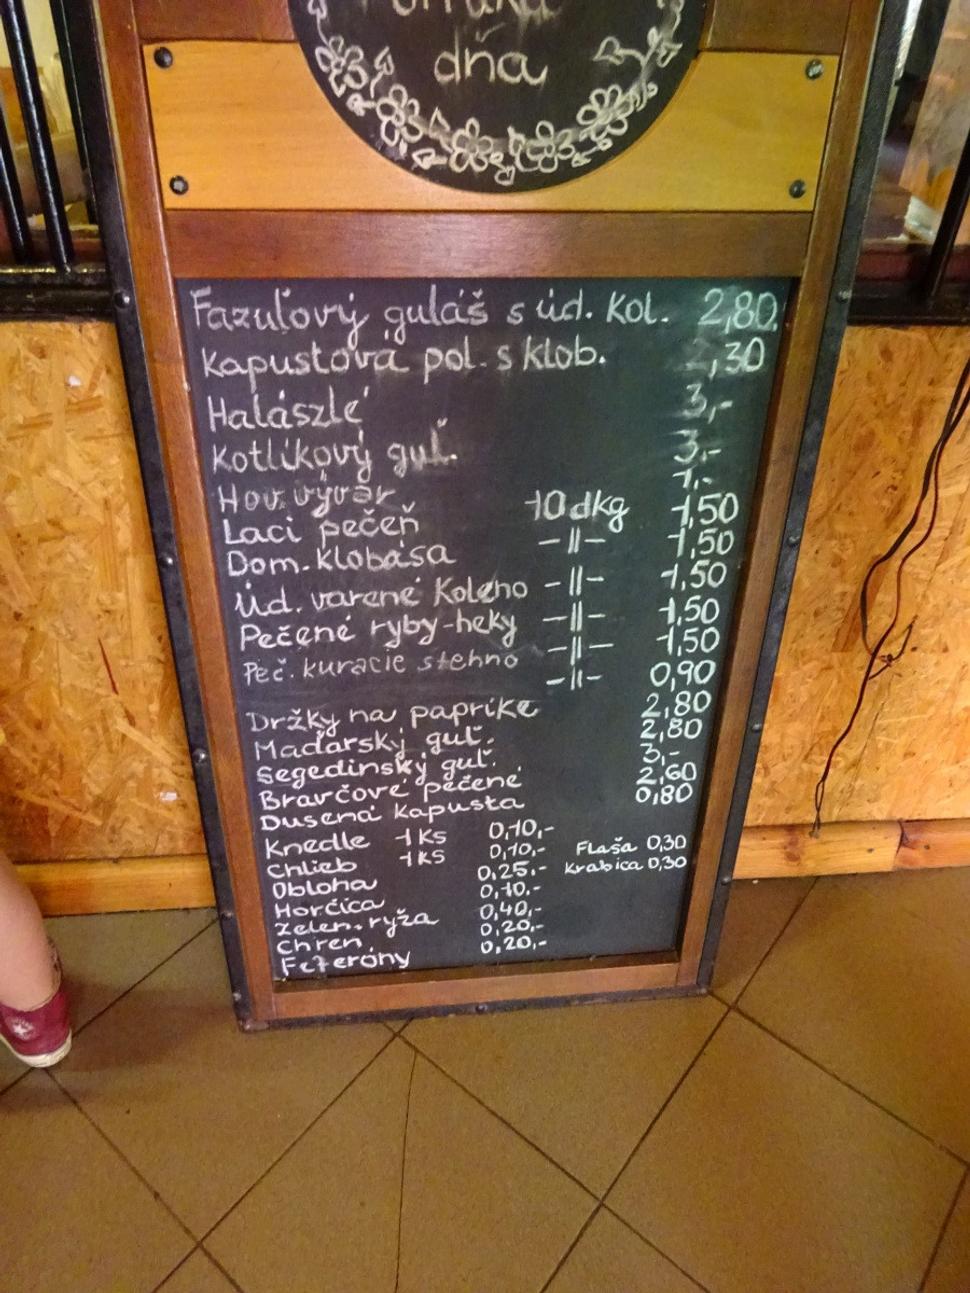 dňa
Fazuľový guláš s úd. kol. 2,80
Kapustová pol. s klob. 2,30
Halászlé 3,-
Kotlíkový guľ. 3,-
Hov. vývar 1,-
Laci pečeň 10 dkg 1,50
Dom. klobása -||- 1,50
Úd. varené koleno -||- 1,50
Pečené ryby-heky -||- 1,50
Peč. kuracie stehno -||- 1,50
-||- 0,90
Držky na paprike 2,80
Maďarský guľ. 2,80
Segedínsky guľ. 3,-
Bravčové pečené 2,60
Dusená kapusta 0,80
Knedle 1ks 0,10,-
Chlieb 1ks 0,10,- Flaša 0,30
Obloha 0,25,- Krabica 0,30
Horčica 0,10,-
Zelen. ryža 0,40,-
Chren 0,20,-
Feferóny 0,20,-